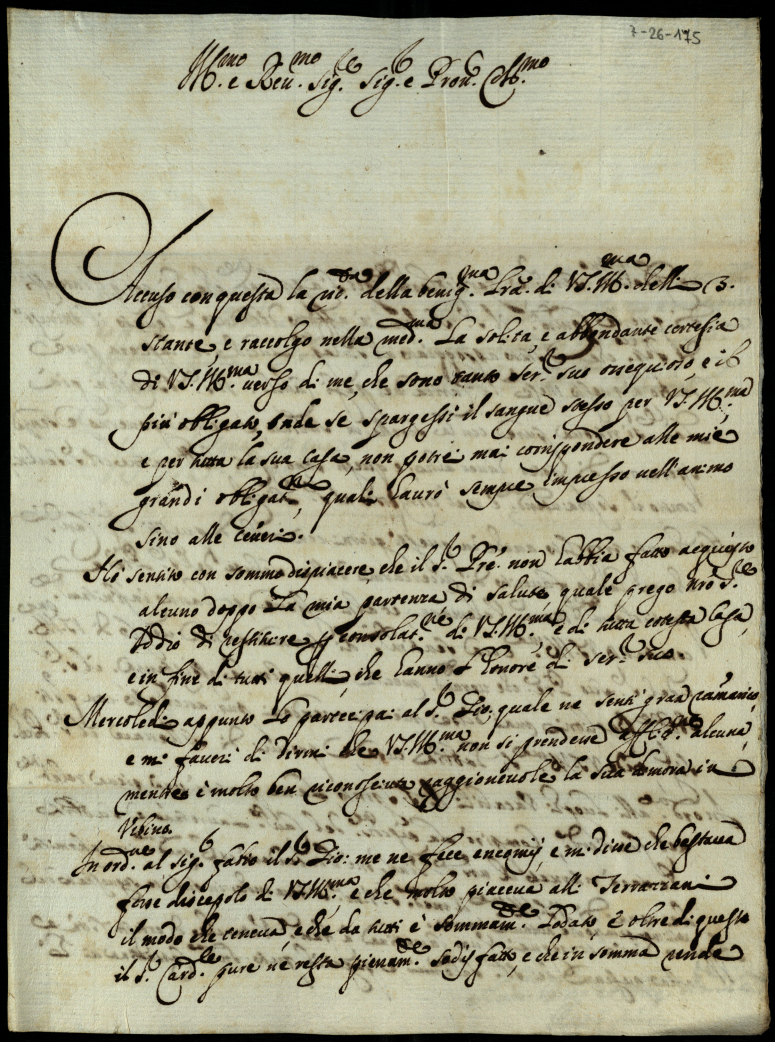 7-26-175
Ill.mo e Reu.mo Sig.re Sig.r e Pron. Col.mo
Accuso con questa la rid.ta della benig.ma lra. di V.S. Ill.ma delli 3.
stante, e raccolgo nella med.ma la solita, e abbondante cortesia
di V.S. Ill.ma uerso di me, che sono tanto ser.re suo ossequioso, e il
più obligato, onde se spargessi il sangue stesso per V.S. Ill.ma,
e per tutta la sua Casa, non potrei mai corrispondere alle mie
grandi obligat.ni, quali haurò sempre impresso nell'animo
sino alle ceneri.
Hò sentito con sommo dispiacere, che il S.r Pre. non habbia fatto acquisto
alcuno doppo la mia partenza di salute, quale prego nro S.re
Iddio di restituire p consolat.ne di V.S. Ill.ma e di tutta cotesta Casa,
e in fine di tutti quelli, che hanno l'honore di ser.re suo.
Mercoledi appunto lo partecipai al S.r Dio, quale ne senti gran ramarico,
e mi fauorì di dirmi che V.S. Ill.ma non si prendesse afflit.ne alcuna,
mentre è molto ben riconosciuta raggioneuole la sua dimora in
Vrbino
In ord.ne al sig.r fatto il S.r Dio: me ne fece encomij, e mi disse che bastaua
fosse discepolo di V.S. Ill.ma, e che molto piaceua alli Terrazzani
il modo che teneua, e che da tutti è sommam.te lodato, e oltre di questo
il S.r Card.le pure ne resta pienam.te sodisfatto, e che in somma rende